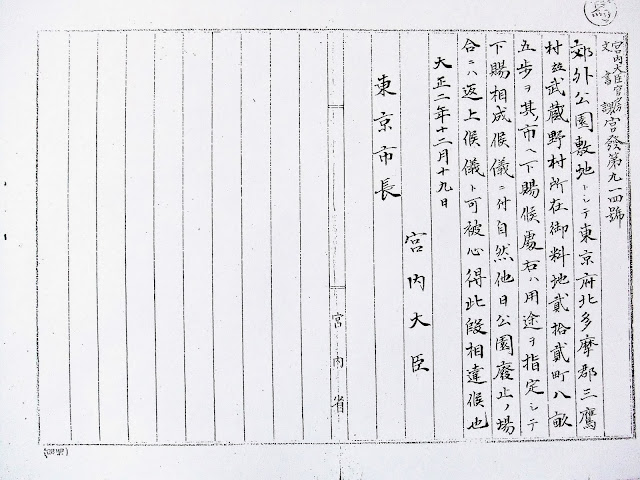 宮内大臣官房
文書課
宮發第九一四號
郊外公園敷地トシテ東京府北多摩郡三鷹
村並武蔵野村所在御料地貳拾貳町八畝
五歩ヲ其ノ市ヘ下賜候處右ハ用途ヲ指定シテ
下賜相成候儀ニ付自然他日公園廢止ノ場
合ニハ返上候儀ト可被心得此段相達候也
大正二年十二月十九日
宮内大臣
東京市長
宮内省